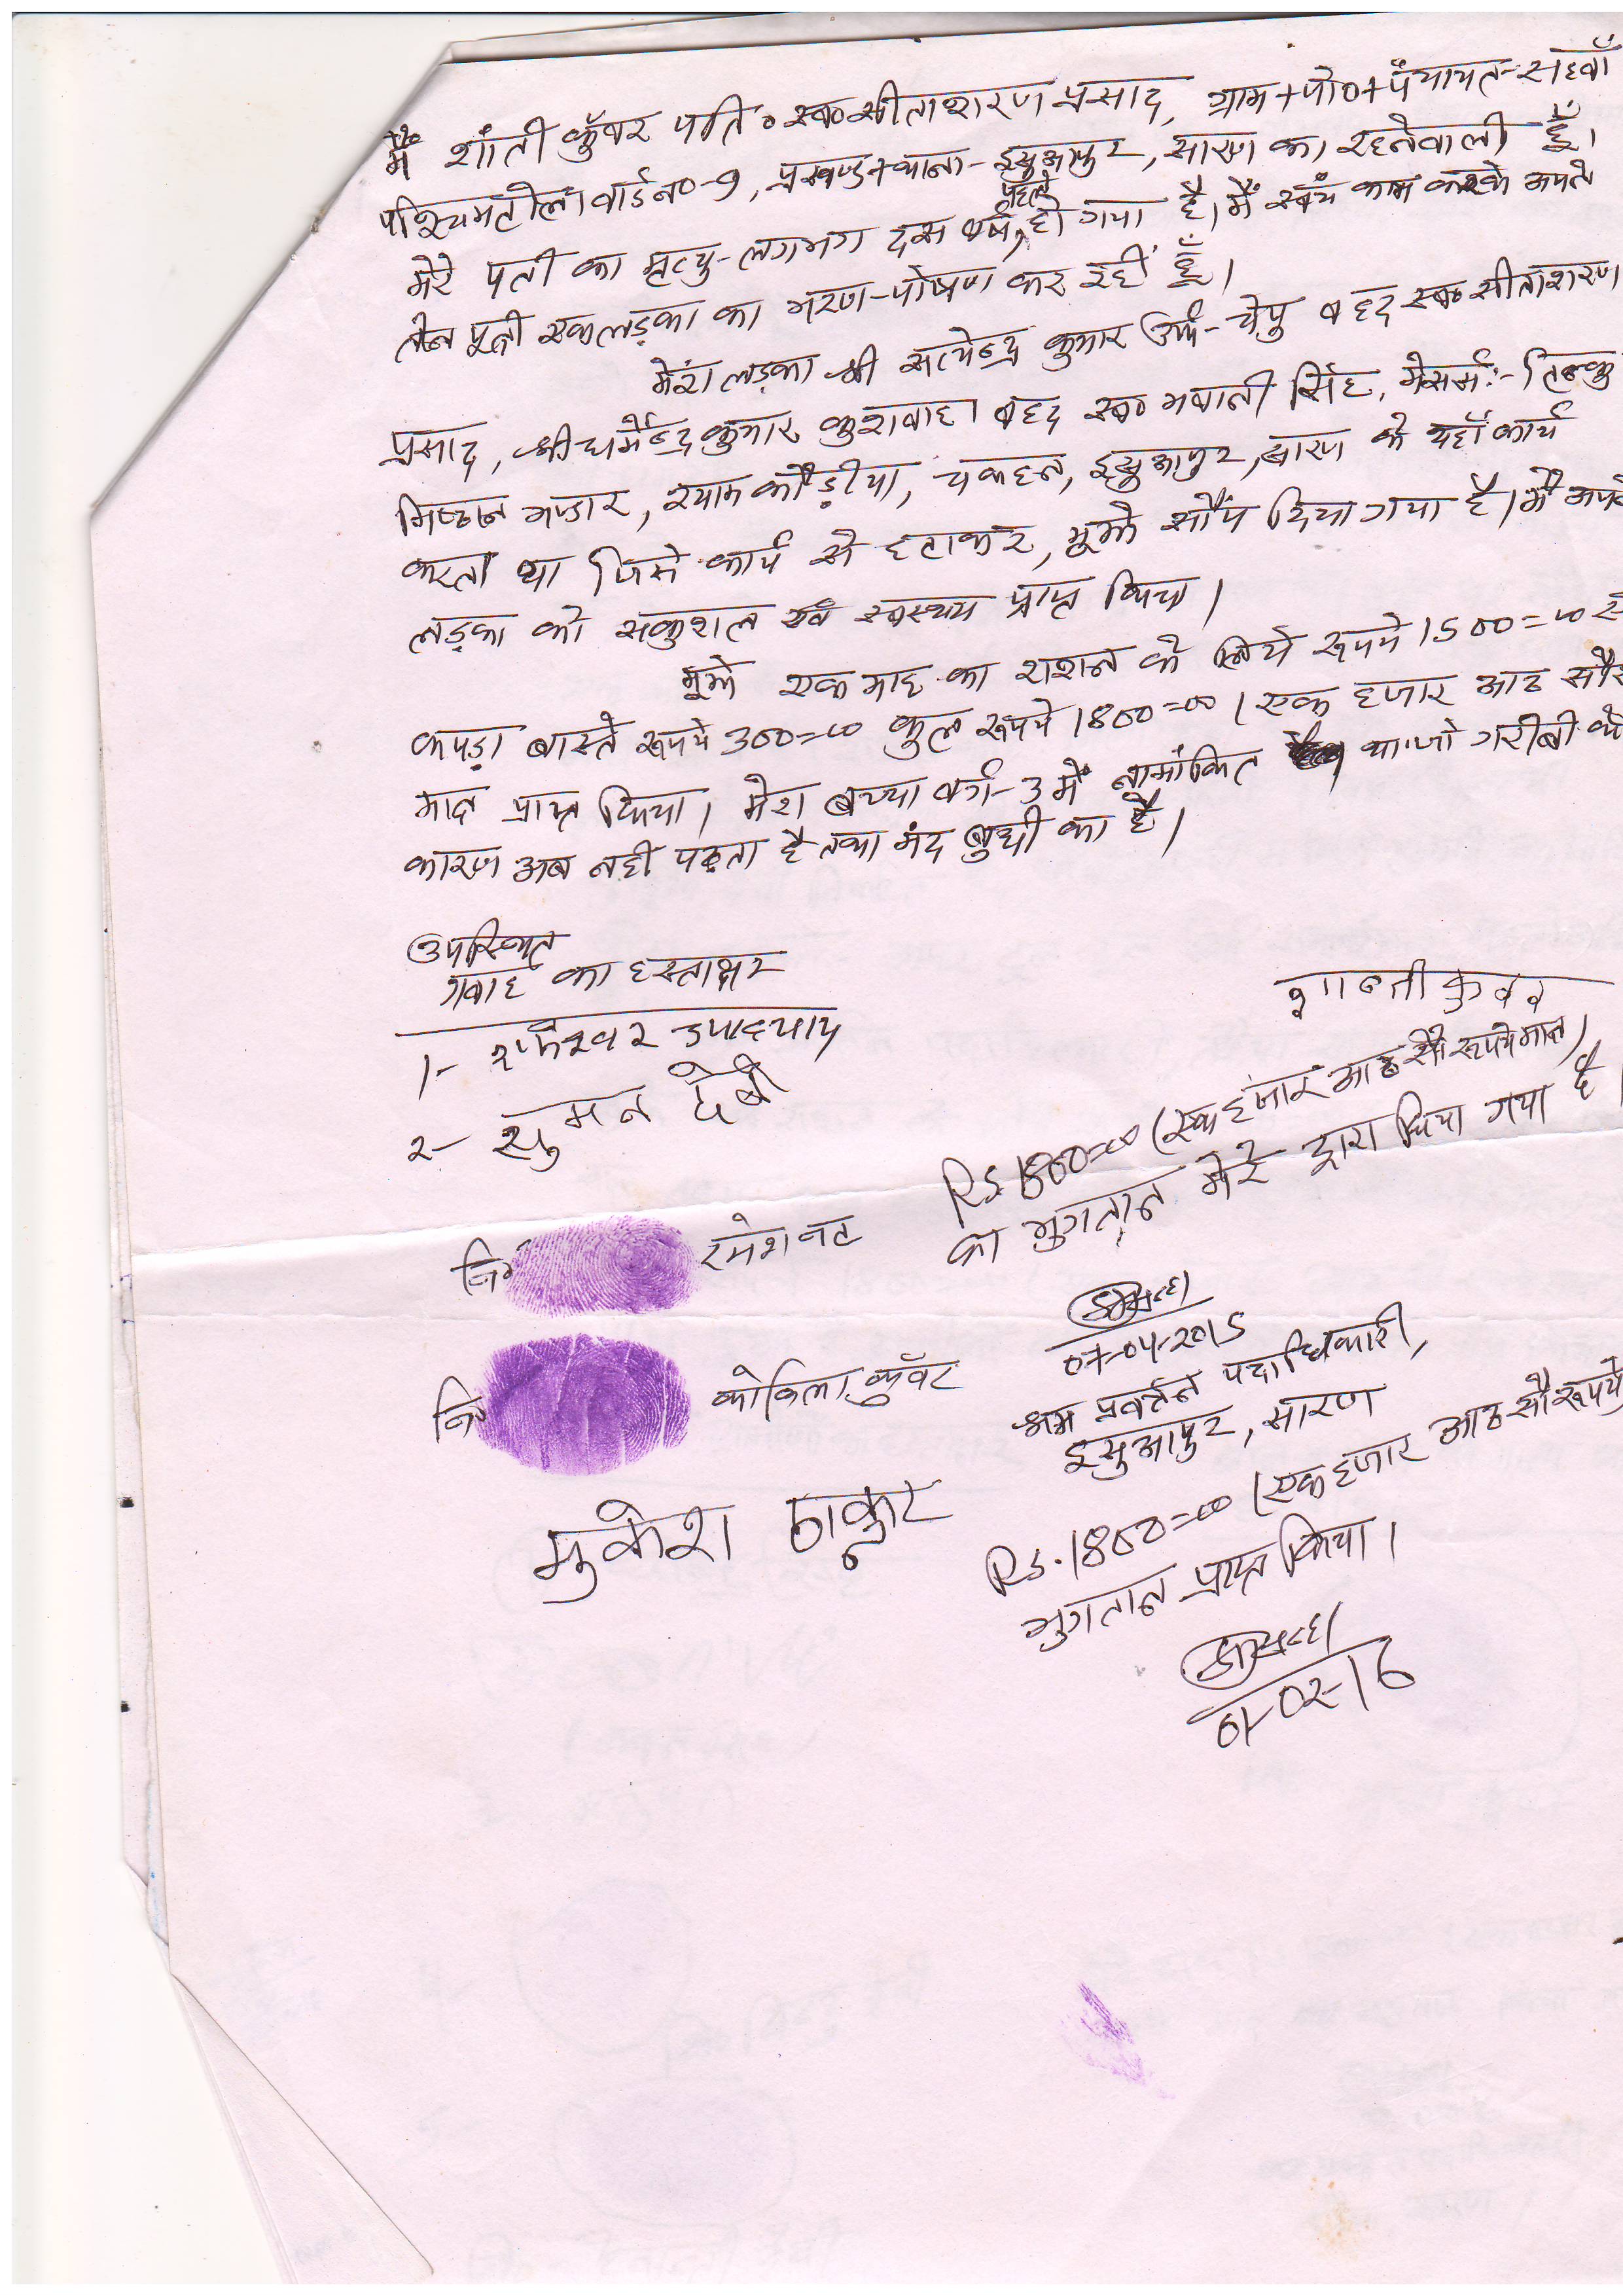 मैं शांती कुँवर पति॰ स्व॰ सीताशरण प्रसाद, ग्राम+पो०+पंचायत-सहवाँ
पश्चिमटोला वार्ड नं०-9, प्रखण्ड+थाना-इसुआपुर, सारण का रहनेवाली हूँ।
मेरे पती का मृत्यु-लगभग दस वर्ष पहले हो गया है। मैं स्वंय काम करके अपने
तीन पूत्री एकलड़का का भरण-पोषण कर रहीं हूँ।
मेरा लड़का श्री सत्येन्द्र कुमार उर्फ-चेपु बहद स्व॰ सीताशरण
प्रसाद, श्री धर्मेन्द्र कुमार कुशवाहा बहद स्व॰ भवानी सिंह, मेसर्स:-तिन्कु
मिष्ठान भण्डार, श्यामकौड़ीया, चकहन, इसुआपुर, सारण के यहाँ कार्य
करता था जिसे कार्य से हटाकर, मूझे सौंप दिया गया है। मैं अपने
लड़का को सकुशल एवं स्वस्थय प्राप्त किया।
मूझे एक माह का राशन के लिये रूपये 1500=00 एवं
कपड़ा वास्ते रूपये 300=00 कुल रूपये 1800=00 (एक हजार आठ सौ रू
मात्र प्राप्त किया। मेरा बच्चा वर्ग-3 में नामांकित था जो गरीबी के
कारण अब नहीं पढ़ता है तथा मंद बुधी का है।
उपस्थित
गवाह का हस्ताक्षर
शान्ती कुवर
1- उपाध्याय
2- सुमन देवी
Rs. 1800=00 (एक हजार आठ सौ रूपये मात्र)
का भुगतान मेरे द्वारा किया गया है।
नि० रमेश नट
07-04-2015
श्रम प्रवर्त्तन पदाधिकारी,
इसुआपुर, सारण
नि० कोकिला कुँवर
मुकेश ठाकुर
Rs. 1800=00 (एक हजार आठ सौ रूपये
भुगतान प्राप्त किया।
01-02-16